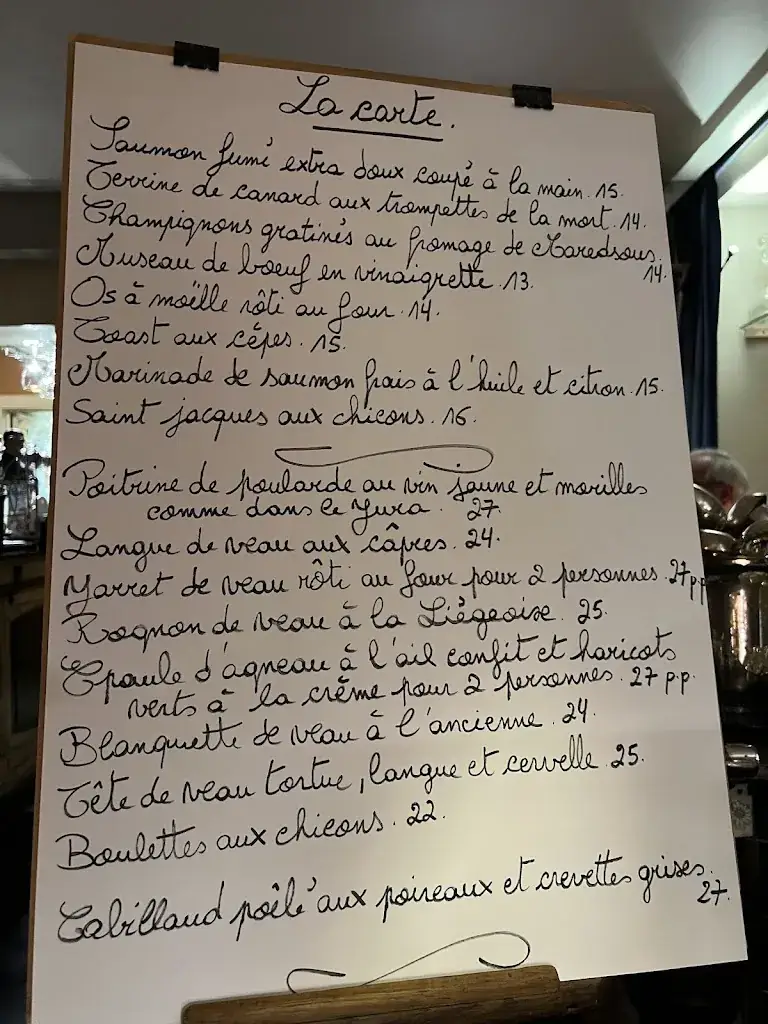 La carte.
Saumon fumé extra doux coupé à la main. 15.
Terrine de canard aux trompettes de la mort. 14.
Champignons gratinés au fromage de Maredsous.
14.
Museau de boeuf en vinaigrette. 13.
Os à moëlle rôti au four. 14.
Toast aux cêpes. 15.
Marinade de saumon frais à l'huile et citron. 15.
Saint jacques aux chicons. 16.
Poitrine de poularde au vin jaune et morilles
comme dans le Jura. 27.
Langue de veau aux câpres. 24.
Jarret de veau rôti au four pour 2 personnes. 27 p.p
Rognon de veau à la Liégeoise. 25.
Epaule d'agneau à l'ail confit et haricots
verts à la crême pour 2 personnes. 27 p.p.
Blanquette de veau à l'ancienne. 24.
Tête de veau tortue, langue et cervelle. 25.
Boulettes aux chicons. 22.
Cabillaud poêlé aux poireaux et crevettes grises.
27.